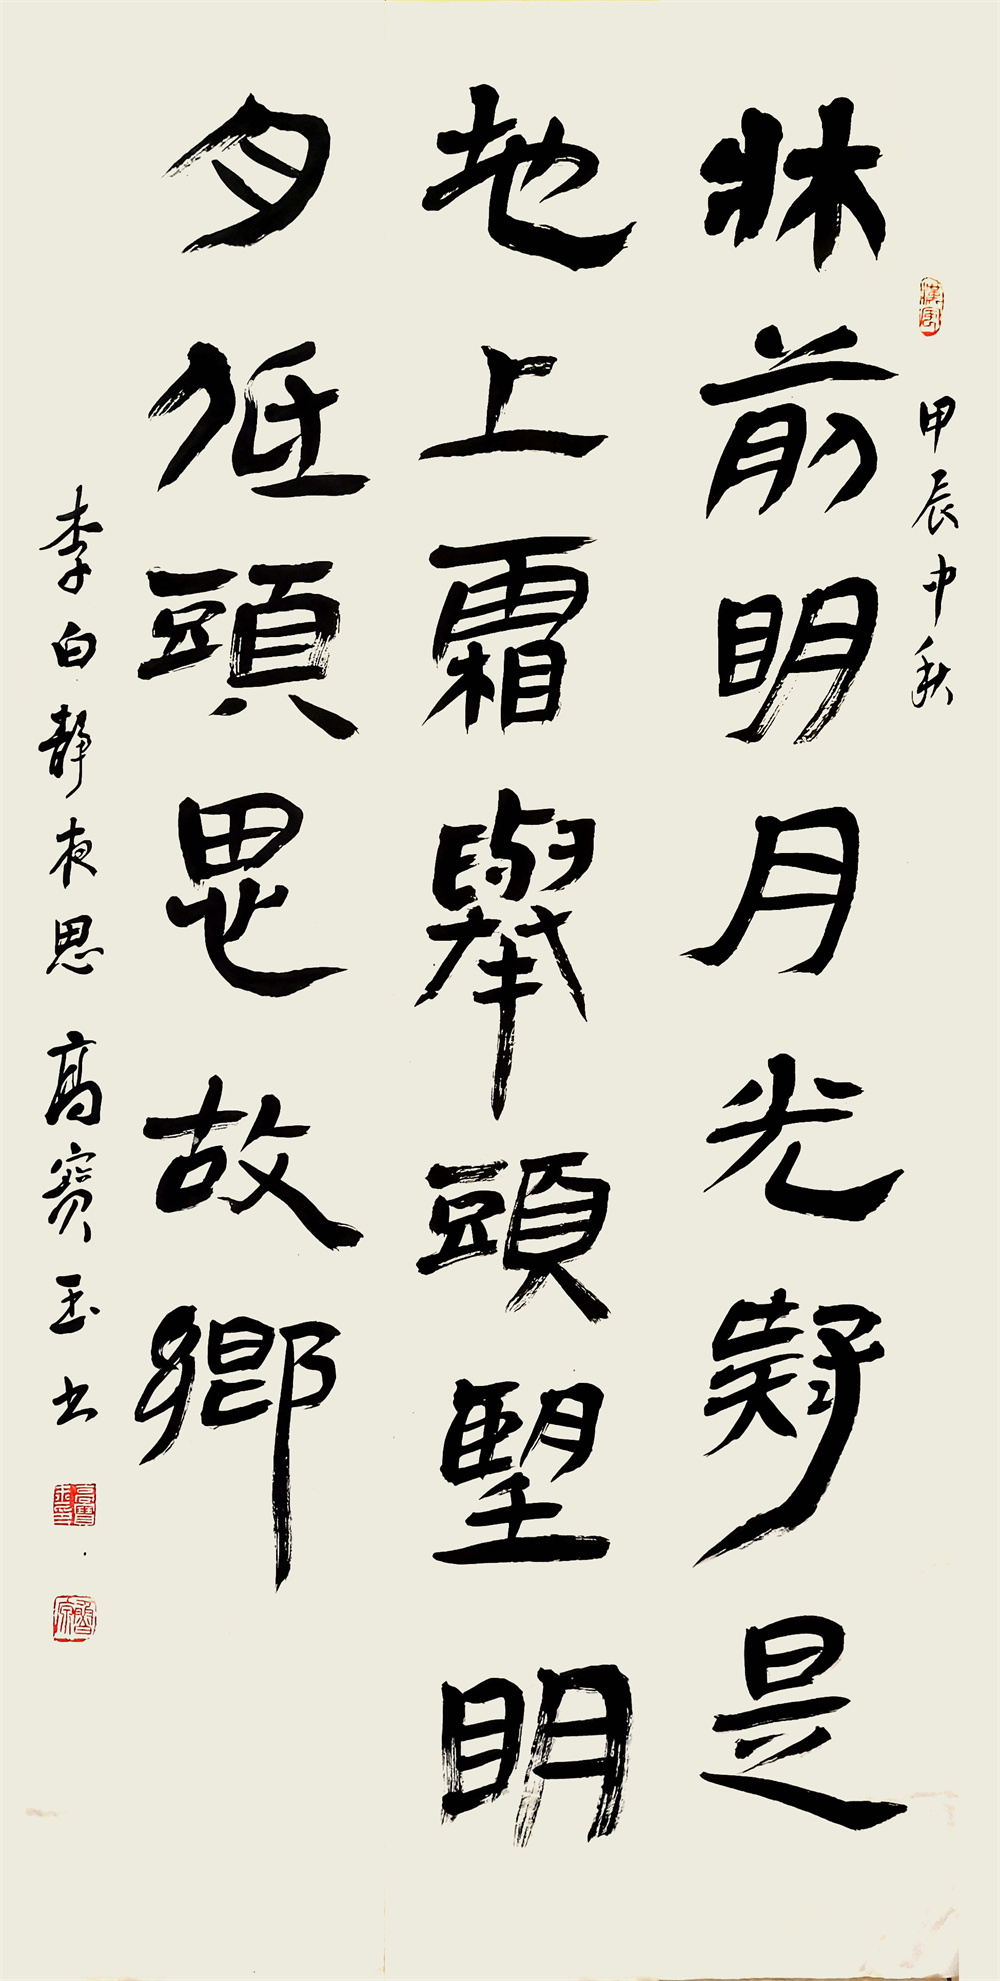 甲辰中秋
牀前明月光疑是
地上霜舉頭望明
月低頭思故鄉
李白靜夜思 高寶玉书
高寶玉印